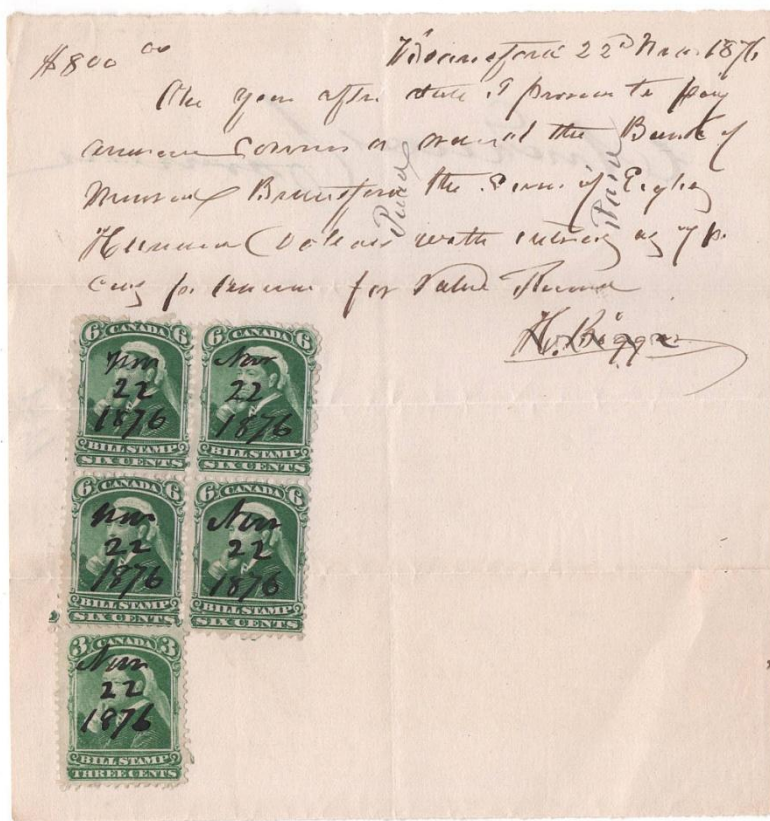 $800 00
Brantford 22d Nov. 1876
One year after date I promise to pay
or order at the Bank of
Montreal Brantford the Sum of Eight
Hundred Dollars with interest at 7 p.
cent for Value Received
Paid
Paid
H. Biggar
6 CANADA 6
Nov
22
1876
BILL STAMP
SIX CENTS
6 CANADA 6
Nov
22
1876
BILL STAMP
SIX CENTS
6 CANADA 6
Nov
22
1876
BILL STAMP
SIX CENTS
6 CANADA 6
Nov
22
1876
BILL STAMP
SIX CENTS
3 CANADA 3
Nov
22
1876
BILL STAMP
THREE CENTS